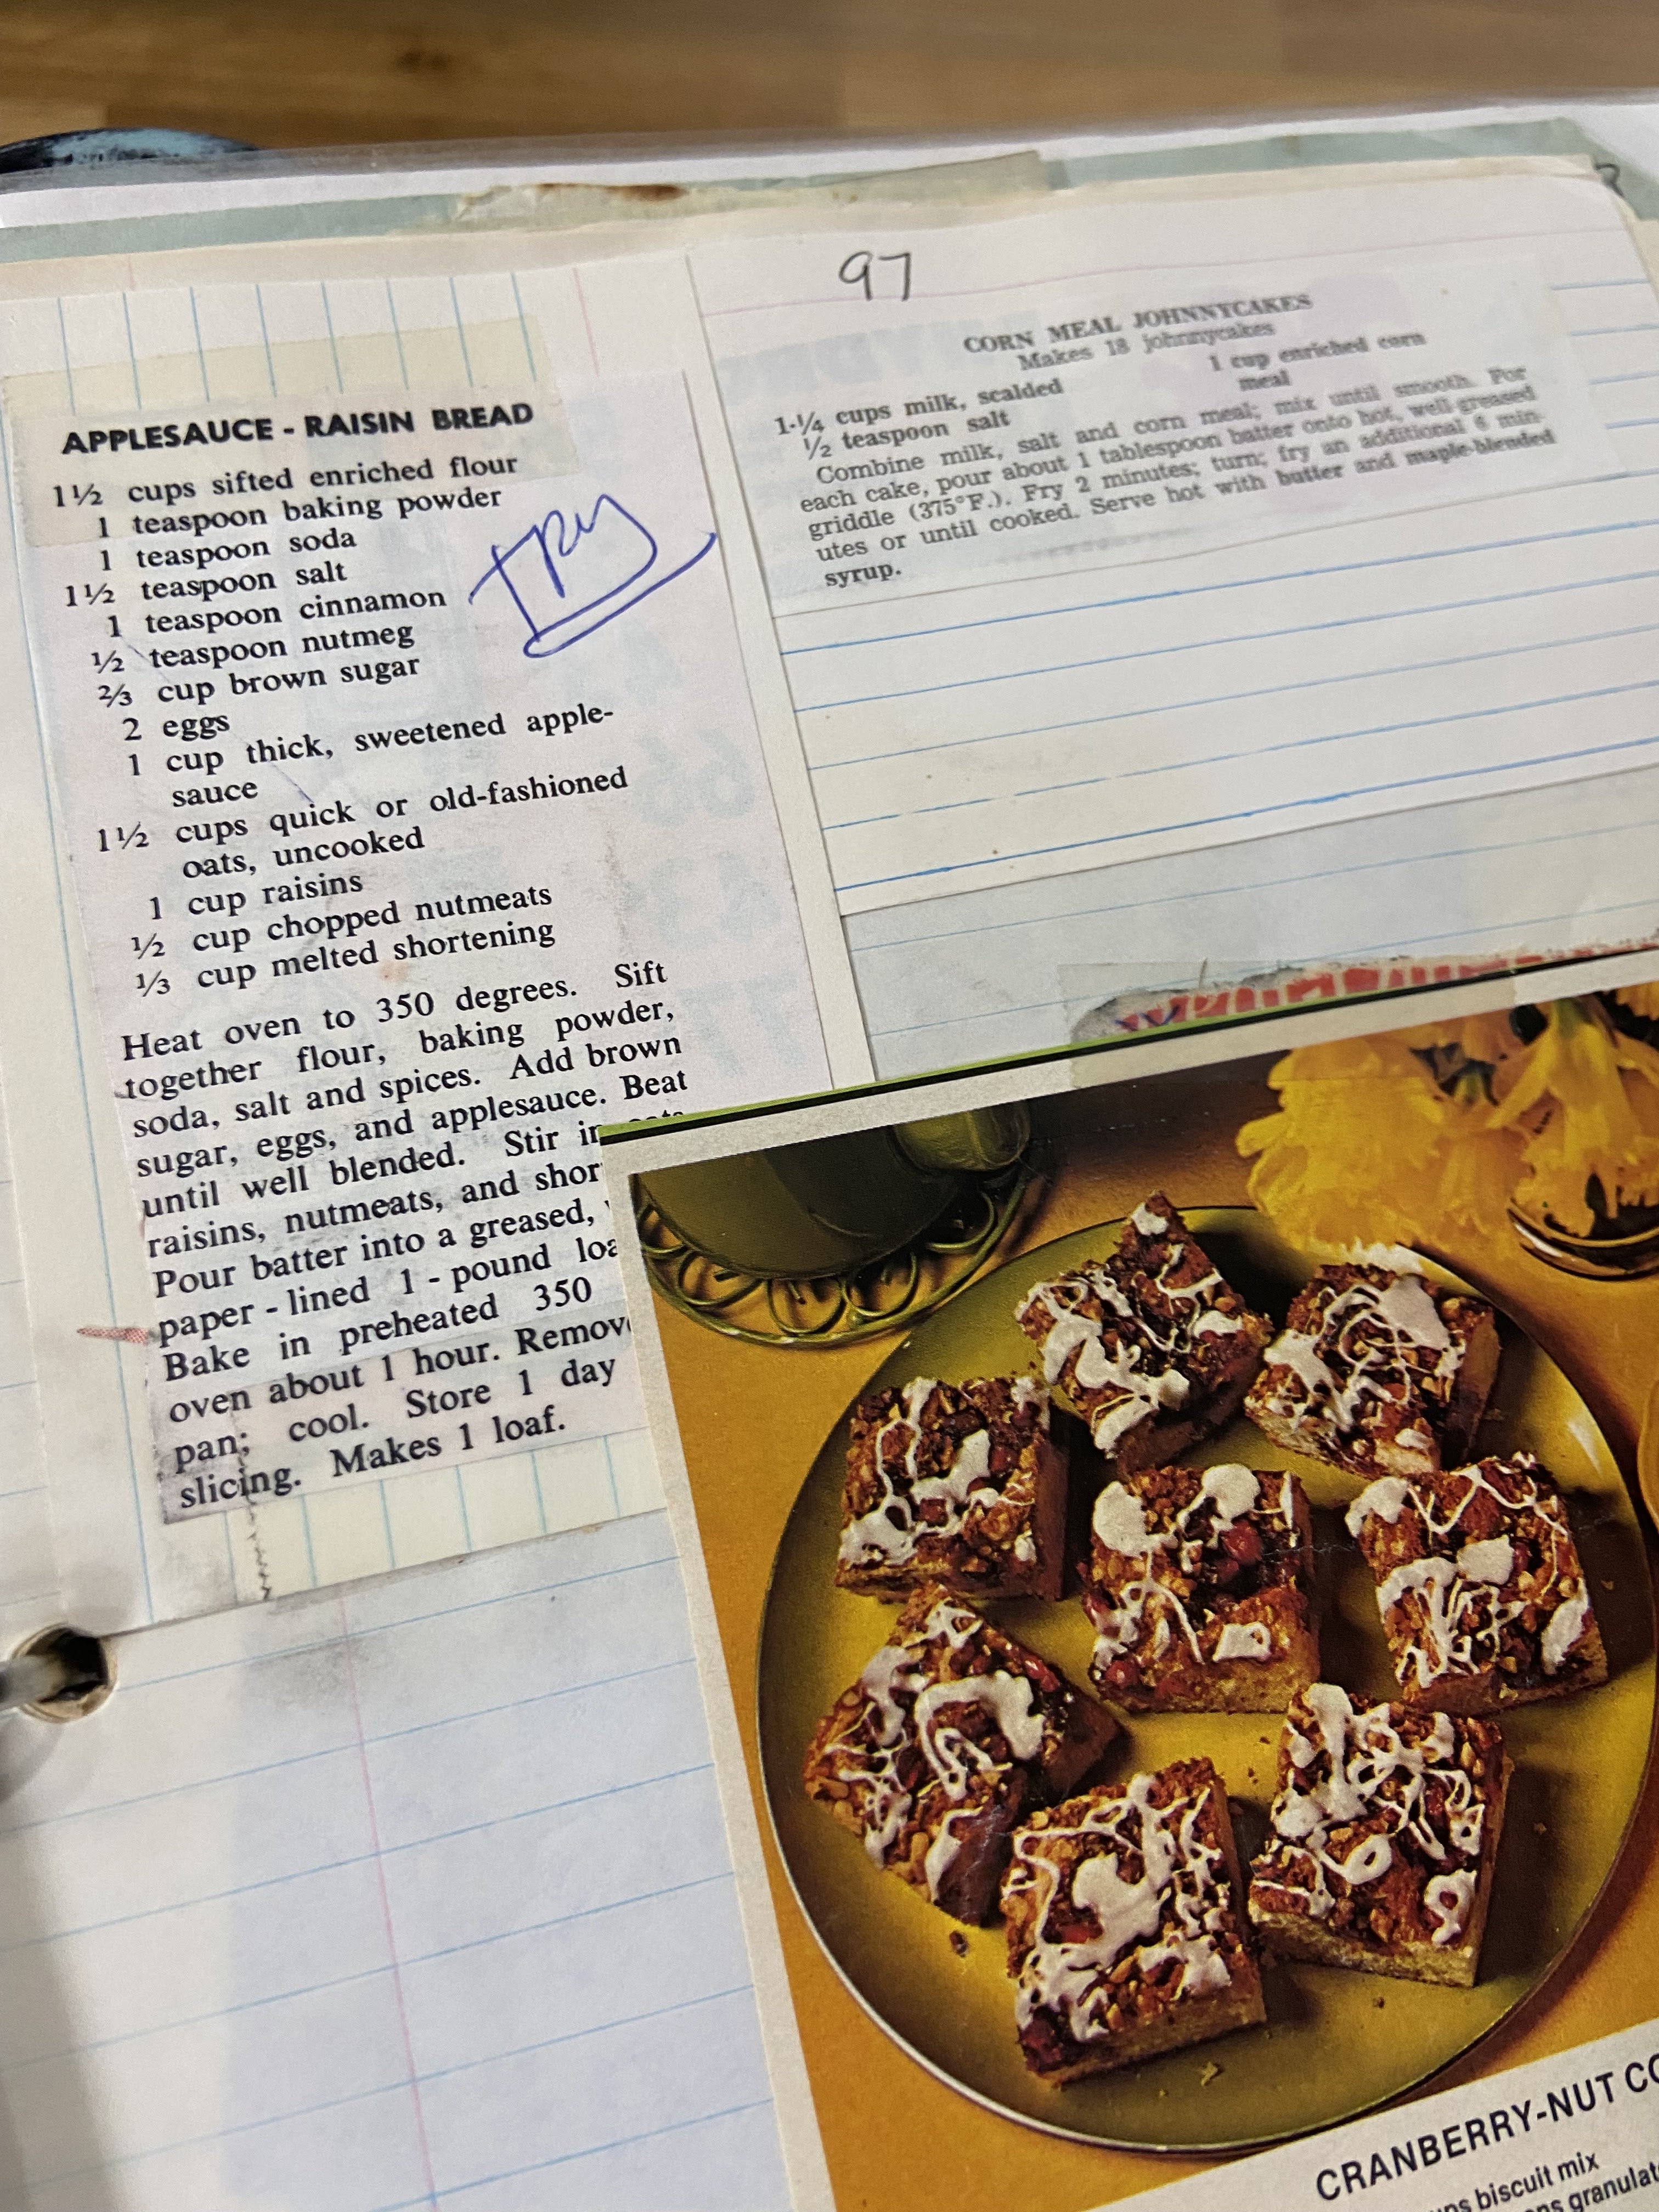 97
APPLESAUCE - RAISIN BREAD
1½ cups sifted enriched flour
1 teaspoon baking powder
1 teaspoon soda
1½ teaspoon salt
1 teaspoon cinnamon
½ teaspoon nutmeg
⅔ cup brown sugar
2 eggs
1 cup thick, sweetened apple-
sauce
1½ cups quick or old-fashioned
oats, uncooked
1 cup raisins
½ cup chopped nutmeats
⅓ cup melted shortening
Try
Heat oven to 350 degrees. Sift
together flour, baking powder,
soda, salt and spices. Add brown
sugar, eggs, and applesauce. Beat
until well blended. Stir in
raisins, nutmeats, and shor
Pour batter into a greased,
paper - lined 1 - pound loa
Bake in preheated 350
oven about 1 hour. Remov
pan; cool. Store 1 day
slicing. Makes 1 loaf.
CORN MEAL JOHNNYCAKES
Makes 18 johnnycakes
1-¼ cups milk, scalded
½ teaspoon salt
1 cup enriched corn
meal
Combine milk, salt and corn meal; mix until smooth. For
each cake, pour about 1 tablespoon batter onto hot, well-greased
griddle (375°F.). Fry 2 minutes; turn; fry an additional 6 min-
utes or until cooked. Serve hot with butter and maple-blended
syrup.
CRANBERRY-NUT CO
ups biscuit mix
ons granulat